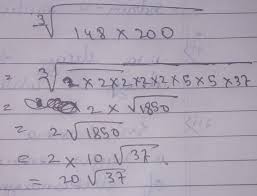 ∛148 × 200
= ∛2 × 2 × 2 × 2 × 2 × 5 × 5 × 37
= 2 × √1850
= 2 √1850
= 2 × 10 √37
= 20 √37